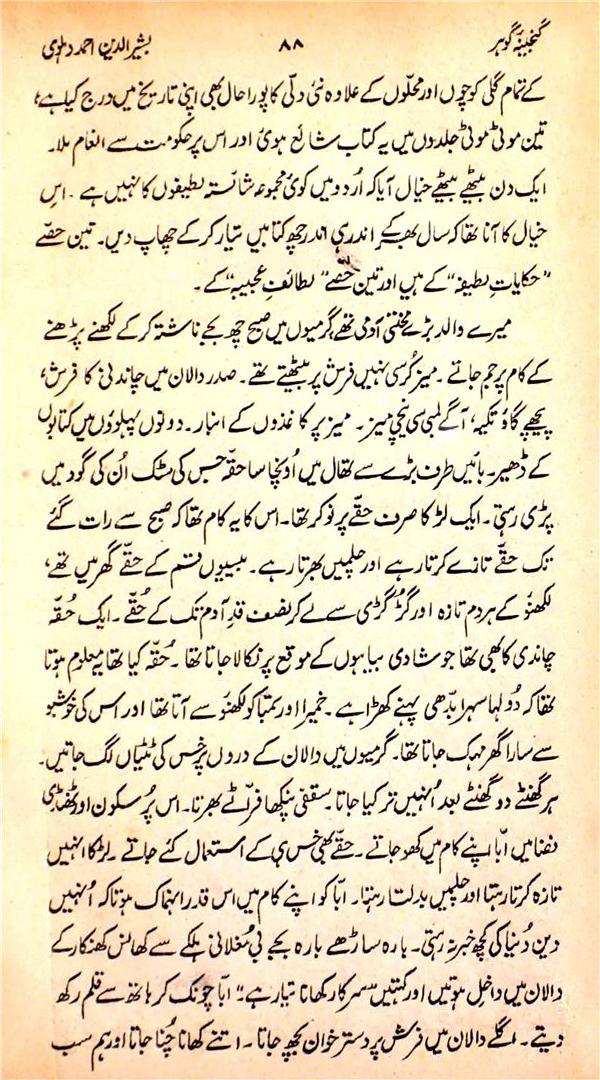 گنجینۂ گوہر ۸۸ بشیر الدین احمد دہلوی
کے تمام گلی کوچوں اور محلّوں کے علاوہ نئی دلّی کا پورا حال بھی اپنی تاریخ میں درج کیا ہے،
تین موٹی موٹی جلدوں میں یہ کتاب شائع ہوئی اور اس پر حکومت سے انعام ملا۔
ایک دن بیٹھے بیٹھے خیال آیا کہ اُردو میں کوئی مجموعہ شائستہ لطیفوں کا نہیں ہے۔ اس
خیال کا آنا تھا کہ سال بھر کے اندر ہی اندر چھ کتابیں تیار کر کے چھاپ دیں۔ تین حصّے
"حکایاتِ لطیفہ" کے ہیں اور تین حصّے "لطائفِ عجیبہ" کے۔
میرے والد بڑے محنتی آدمی تھے، گرمیوں میں صبح چھ بجے ناشتہ کر کے لکھنے پڑھنے
کے کام پر جم جاتے۔ میز کُرسی نہیں فرش پر بیٹھتے تھے۔ صدر دالان میں چاندنی کا فرش،
پیچھے گاؤ تکیہ، آگے لمبی سی نیچی میز۔ میز پر کاغذوں کے انبار۔ دونوں پہلوؤں میں کتابوں
کے ڈھیر۔ بائیں طرف بڑے سے تھال میں اُونچا سا حقہ جس کی سٹک اُن کی گود میں
پڑی رہتی۔ ایک لڑکا صرف حقے پر نوکر تھا۔ اس کا یہ کام تھا کہ صبح سے رات گئے
تک حقّے تازے کرتا رہے اور چلمیں بھرتا رہے۔ بیسیوں قسم کے حقّے گھر میں تھے،
لکھنؤ کے ہر دم تازہ اور گڑگڑی سے لے کر نصف قدِ آدم تک کے حُقّے۔ ایک حُقّہ
چاندی کا بھی تھا جو شادی بیاہوں کے موقع پر نکالا جاتا تھا۔ حُقّہ کیا تھا یہ معلوم ہوتا
تھا کہ دُولہا سہرا بدّھی پہنے کھڑا ہے۔ خمیرا اور تمباکو لکھنؤ سے آتا تھا اور اس کی خوشبو
سے سارا گھر مہک جاتا تھا۔ گرمیوں میں دالان کے دروں پر خس کی ٹٹیاں لگ جاتیں۔
ہر گھنٹے دو گھنٹے بعد اُنہیں تر کیا جاتا۔ سقفی پنکھا فرّاٹے بھرتا۔ اس پُرسکون اور ٹھنڈی
فضا میں ابّا اپنے کام میں کھو جاتے۔ حقّے بھی خس ہی کے استعمال کئے جاتے۔ لڑکا انہیں
تازہ کرتا رہتا اور چلمیں بدلتا رہتا۔ ابّا کو اپنے کام میں اس قدر انہماک ہوتا کہ اُنہیں
دین دُنیا کی کچھ خبر نہ رہتی۔ بارہ ساڑھے بارہ بجے بی مُغلانی ہلکے سے کھانس کھنکار کے
دالان میں داخل ہوتیں اور کہتیں "سرکار کھانا تیار ہے۔" ابّا چونک کر ہاتھ سے قلم رکھ
دیتے۔ اگلے دالان میں فرش پر دسترخوان بچھ جاتا۔ اتنے کھانا چُنا جاتا اور ہم سب